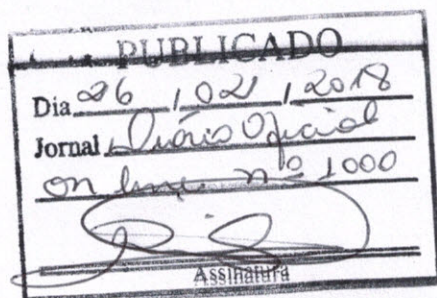 PUBLICADO
Dia 26 / 02 / 2018
Jornal Diário Oficial
on line nº 1000
Assinatura